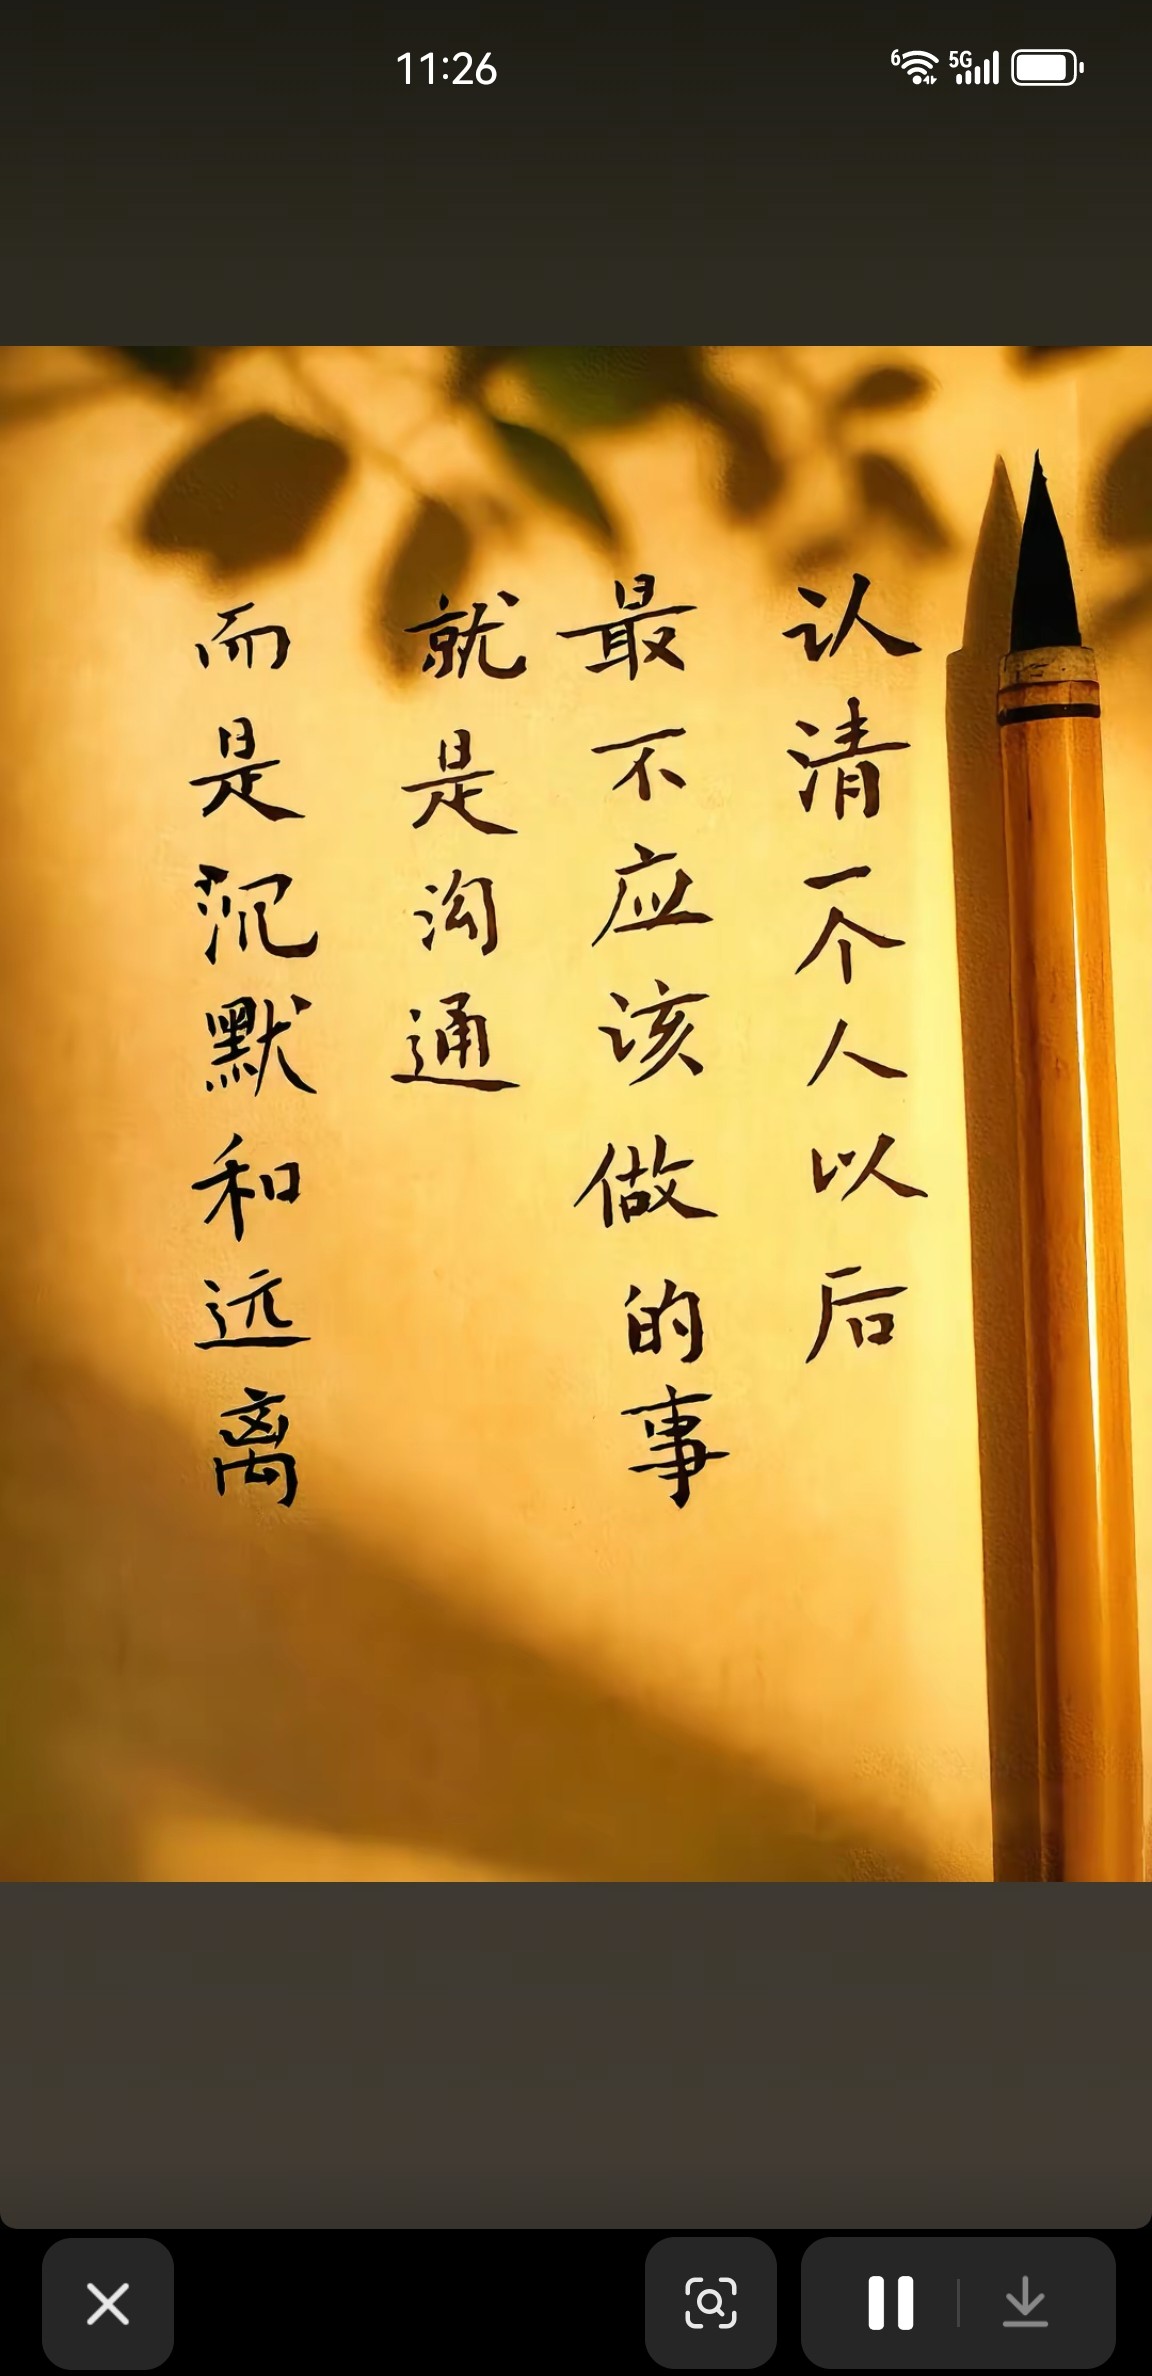 11:26
6
5G
认清一个人以后
最不应该做的事
就是沟通
而是沉默和远离